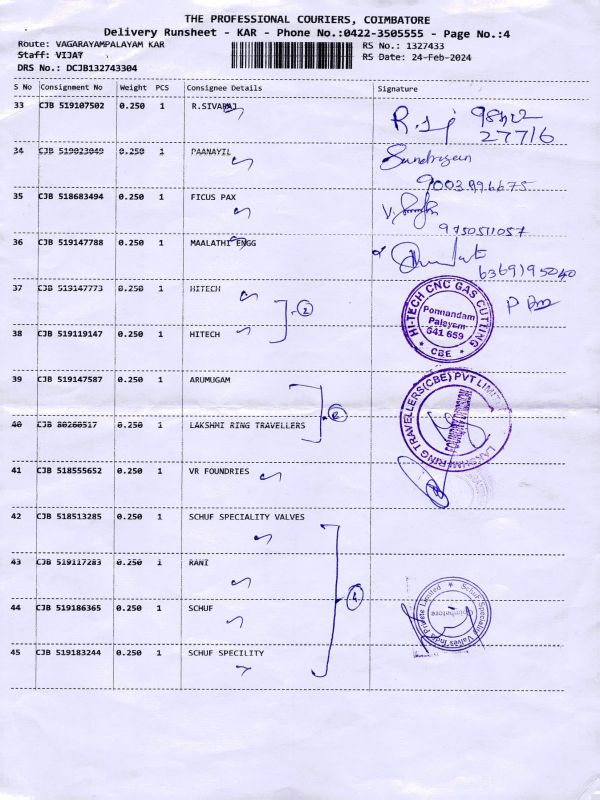 THE PROFESSIONAL COURIERS, COIMBATORE
Delivery Runsheet - KAR - Phone No.:0422-3505555 - Page No.:4
Route: VAGARAYAMPALAYAM KAR
RS No.: 1327433
Staff: VIJAY
RS Date: 24-Feb-2024
DRS No.: DCJB132743304
S No Consignment No Weight PCS Consignee Details Signature
33 CJB 519107502 0.250 1 R.SIVARAJ
98422
27716
34 CJB 519023049 0.250 1 PAANAYIL
9003996675
35 CJB 518683494 0.250 1 FICUS PAX
9750511057
36 CJB 519147788 0.250 1 MAALATHI ENGG
6369195040
37 CJB 519147773 0.250 1 HITECH
2
HI-TECH CNC GAS CUTTING
Ponnandam
Palayam
641 659
* CBE *
38 CJB 519119147 0.250 1 HITECH
39 CJB 519147587 0.250 1 ARUMUGAM
LAKSHMI RING TRAVELLERS(CBE) PVT LIMITED
FOUNDRY DIVISION
40 CJB 80260517 0.250 1 LAKSHMI RING TRAVELLERS
41 CJB 518555652 0.250 1 VR FOUNDRIES
42 CJB 518513285 0.250 1 SCHUF SPECIALITY VALVES
43 CJB 519117283 0.250 1 RANI
4
44 CJB 519186365 0.250 1 SCHUF
SchuF Speciality Valves India Private Limited
Coimbatore
45 CJB 519183244 0.250 1 SCHUF SPECILITY